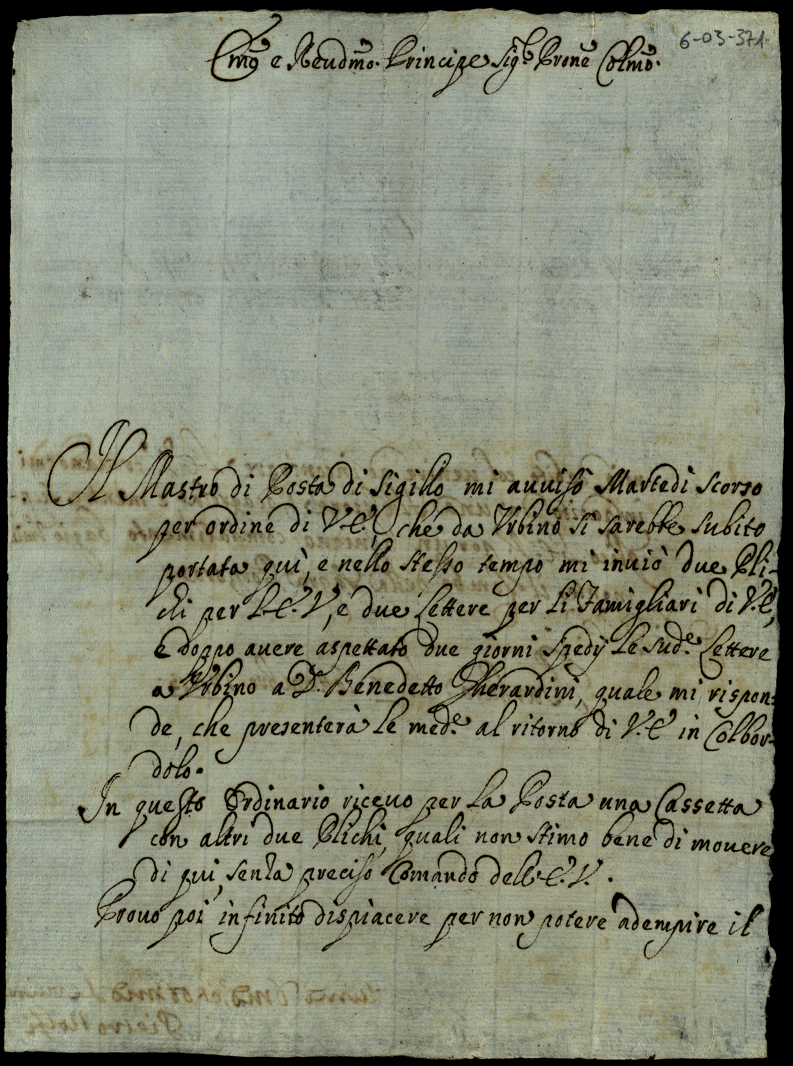 6-03-371
Emo e Reudmo. Principe Sigr. Prone Colmo.
Il Mastro di Posta di Sigillo mi auuisò Martedì scorso
per ordine di V.E., che da Vrbino si sarebbe subito
portata quì, e nello stesso tempo mi inuiò due Pli-
chi per L'E.V., e due Lettere per li Famigliari di V.E,
e doppo auere aspettato due giorni spedij le sude. Lettere
a Vrbino a D. Benedetto Gherardini, quale mi rispon-
de, che presenterà le mede. al ritorno di V.E in Colbor-
dolo.
In questo Ordinario riceuo per la Posta una Cassetta
con altri due Plichi, quali non stimo bene di mouere
di quì, senza preciso Comando dell'E.V.
Prouo poi infinito dispiacere per non potere adempire il